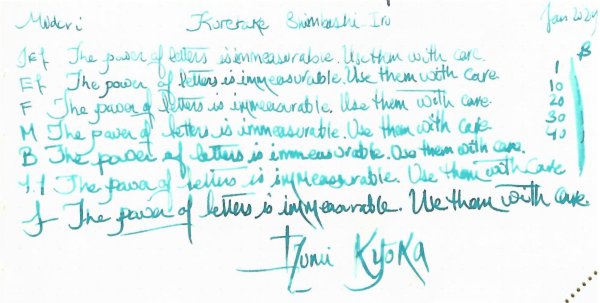 Midori Kuretake Shimbashi Iro Jan 2024
Jef The power of letters is immeasurable. Use them with care.
Ef The power of letters is immeasurable. Use them with care. 1
F The power of letters is immeasurable. Use them with care. 10
M The power of letters is immeasurable. Use them with care. 20
B The power of letters is immeasurable. Use them with care. 30
1.1 The power of letters is immeasurable. Use them with care 40
f The power of letters is immeasurable. Use them with care.
Izumi Kyoka